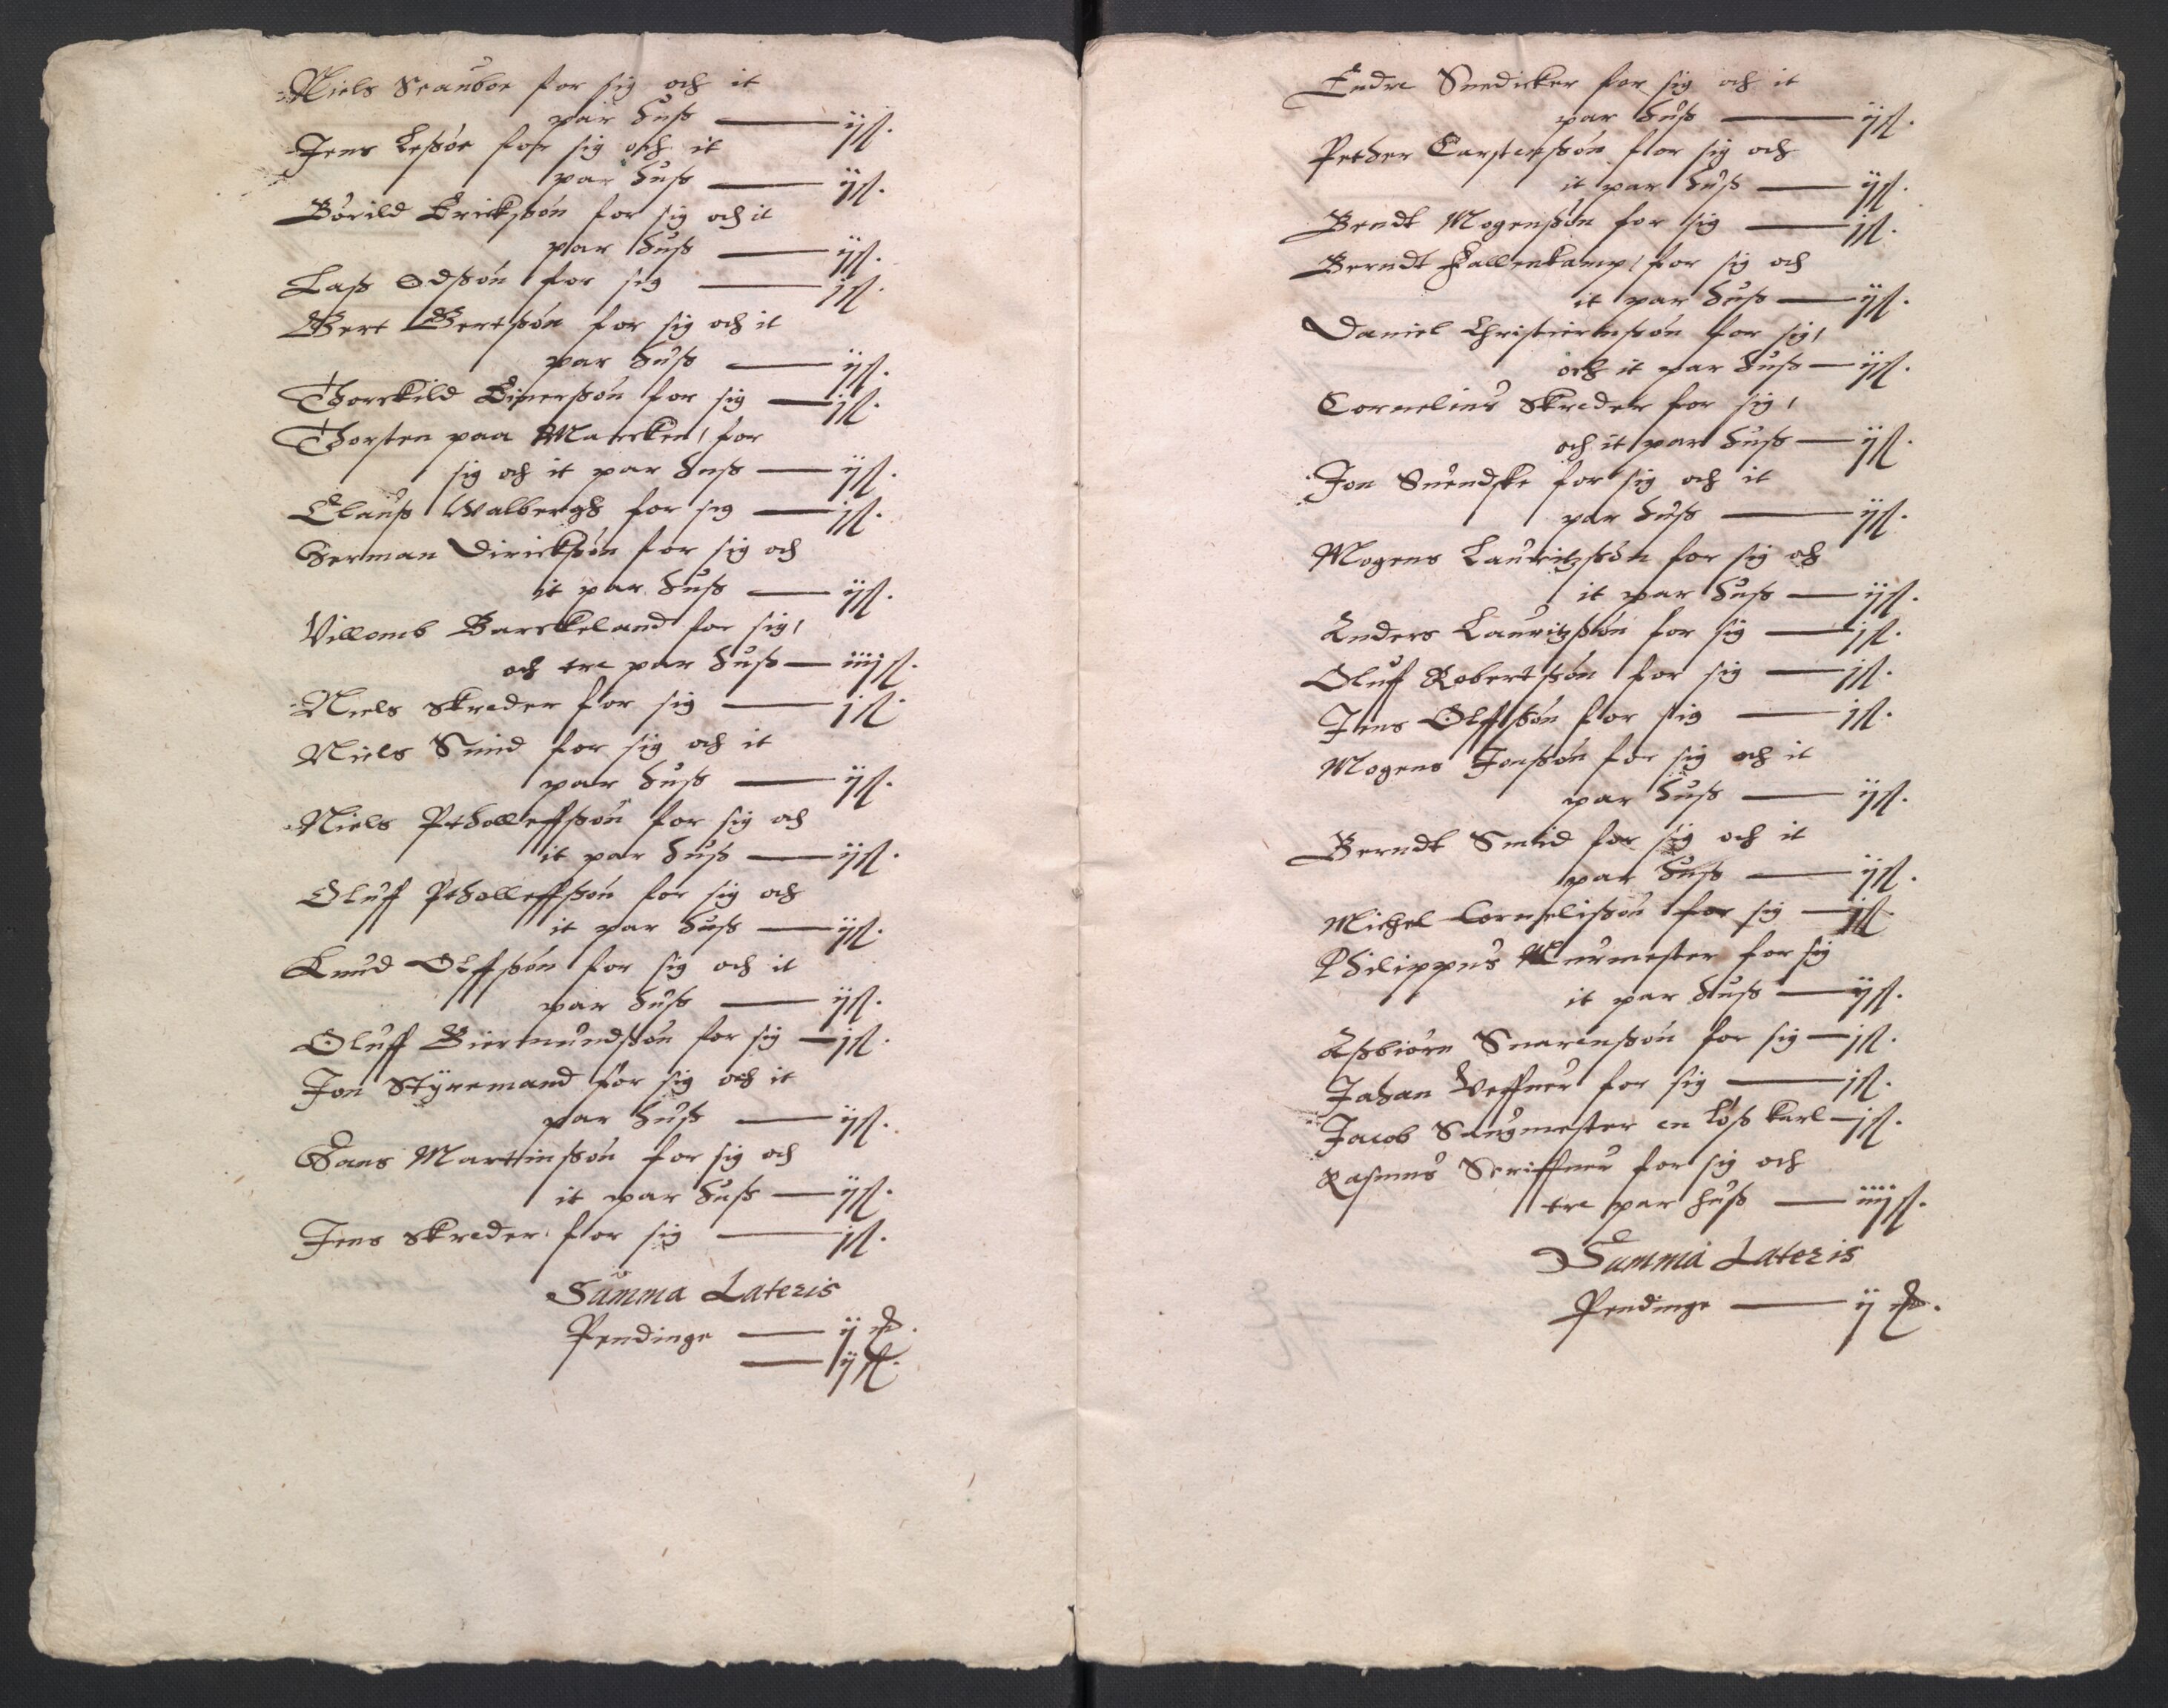 Niels Scauboe for sig och it
par huß — ij ß.
Jens Leßøe for sig och it
par huß — ij ß.
Børild Erickßøn for sig och it
par huß — ij ß.
Laß Odßøn for sig — j ß.
Gert Gertßøn for sig och it
par huß — ij ß.
Thorkild Einerßøn for sig — j ß.
Thorsten paa Marcken, for
sig och it par huß — ij ß.
Clauß Walbergh for sig — j ß.
Herman Dirickßøn for sig och
it par huß — ij ß.
Villomb Barckeland for sig,
och tre par huß — iiij ß.
Niels Skreder for sig — j ß.
Niels Smid for sig och it
par huß — ij ß.
Niels Petholleffßøn for sig och
it par huß — ij ß.
Oluff Petholleffßøn for sig och
it par huß — ij ß.
Knud Olffßøn for sig och it
par huß — ij ß.
Oluff Biermundßøn for sig — j ß.
Jon Styremand for sig och it
par huß — ij ß.
Hans Martinßøn for sig och
it par huß — ij ß.
Jens Skreder for sig — j ß.
Summa Lateris
Pendinge — ij
— ij ß.
Endre Snedicker for sig och it
par huß — ij ß.
Pether Carstenßøn for sig och
it par huß — ij ß.
Bendt Mogenßøn for sig — j ß.
Berndt Fallenkamp, for sig och
it par huß — ij ß.
Daniel Christiernßøn for sig,
och it par huß — ij ß.
Cornelius Skreder for sig,
och it par huß — ij ß.
Jon Suendske for sig och it
par huß — ij ß.
Mogens Lauritzßøn for sig och
it par huß — ij ß.
Anders Lauritzßøn for sig — j ß.
Oluff Robertßøn for sig — j ß.
Jens Olffßøn for sig — j ß.
Mogens Jonßøn for sig och it
par huß — ij ß.
Berndt Smid for sig och it
par huß — ij ß.
Michel Cornelißøn for sig — j ß.
Philippus Murmester for sig
it par huß — ij ß.
Aßbiørn Snarenßøn for sig — j ß.
Johan Veffner for sig — j ß.
Jacob Sangmester en løß karl — j ß.
Rasmus Scriffuer for sig och
tre par huß — iiij ß.
Summa Lateris
Pendinge — ij